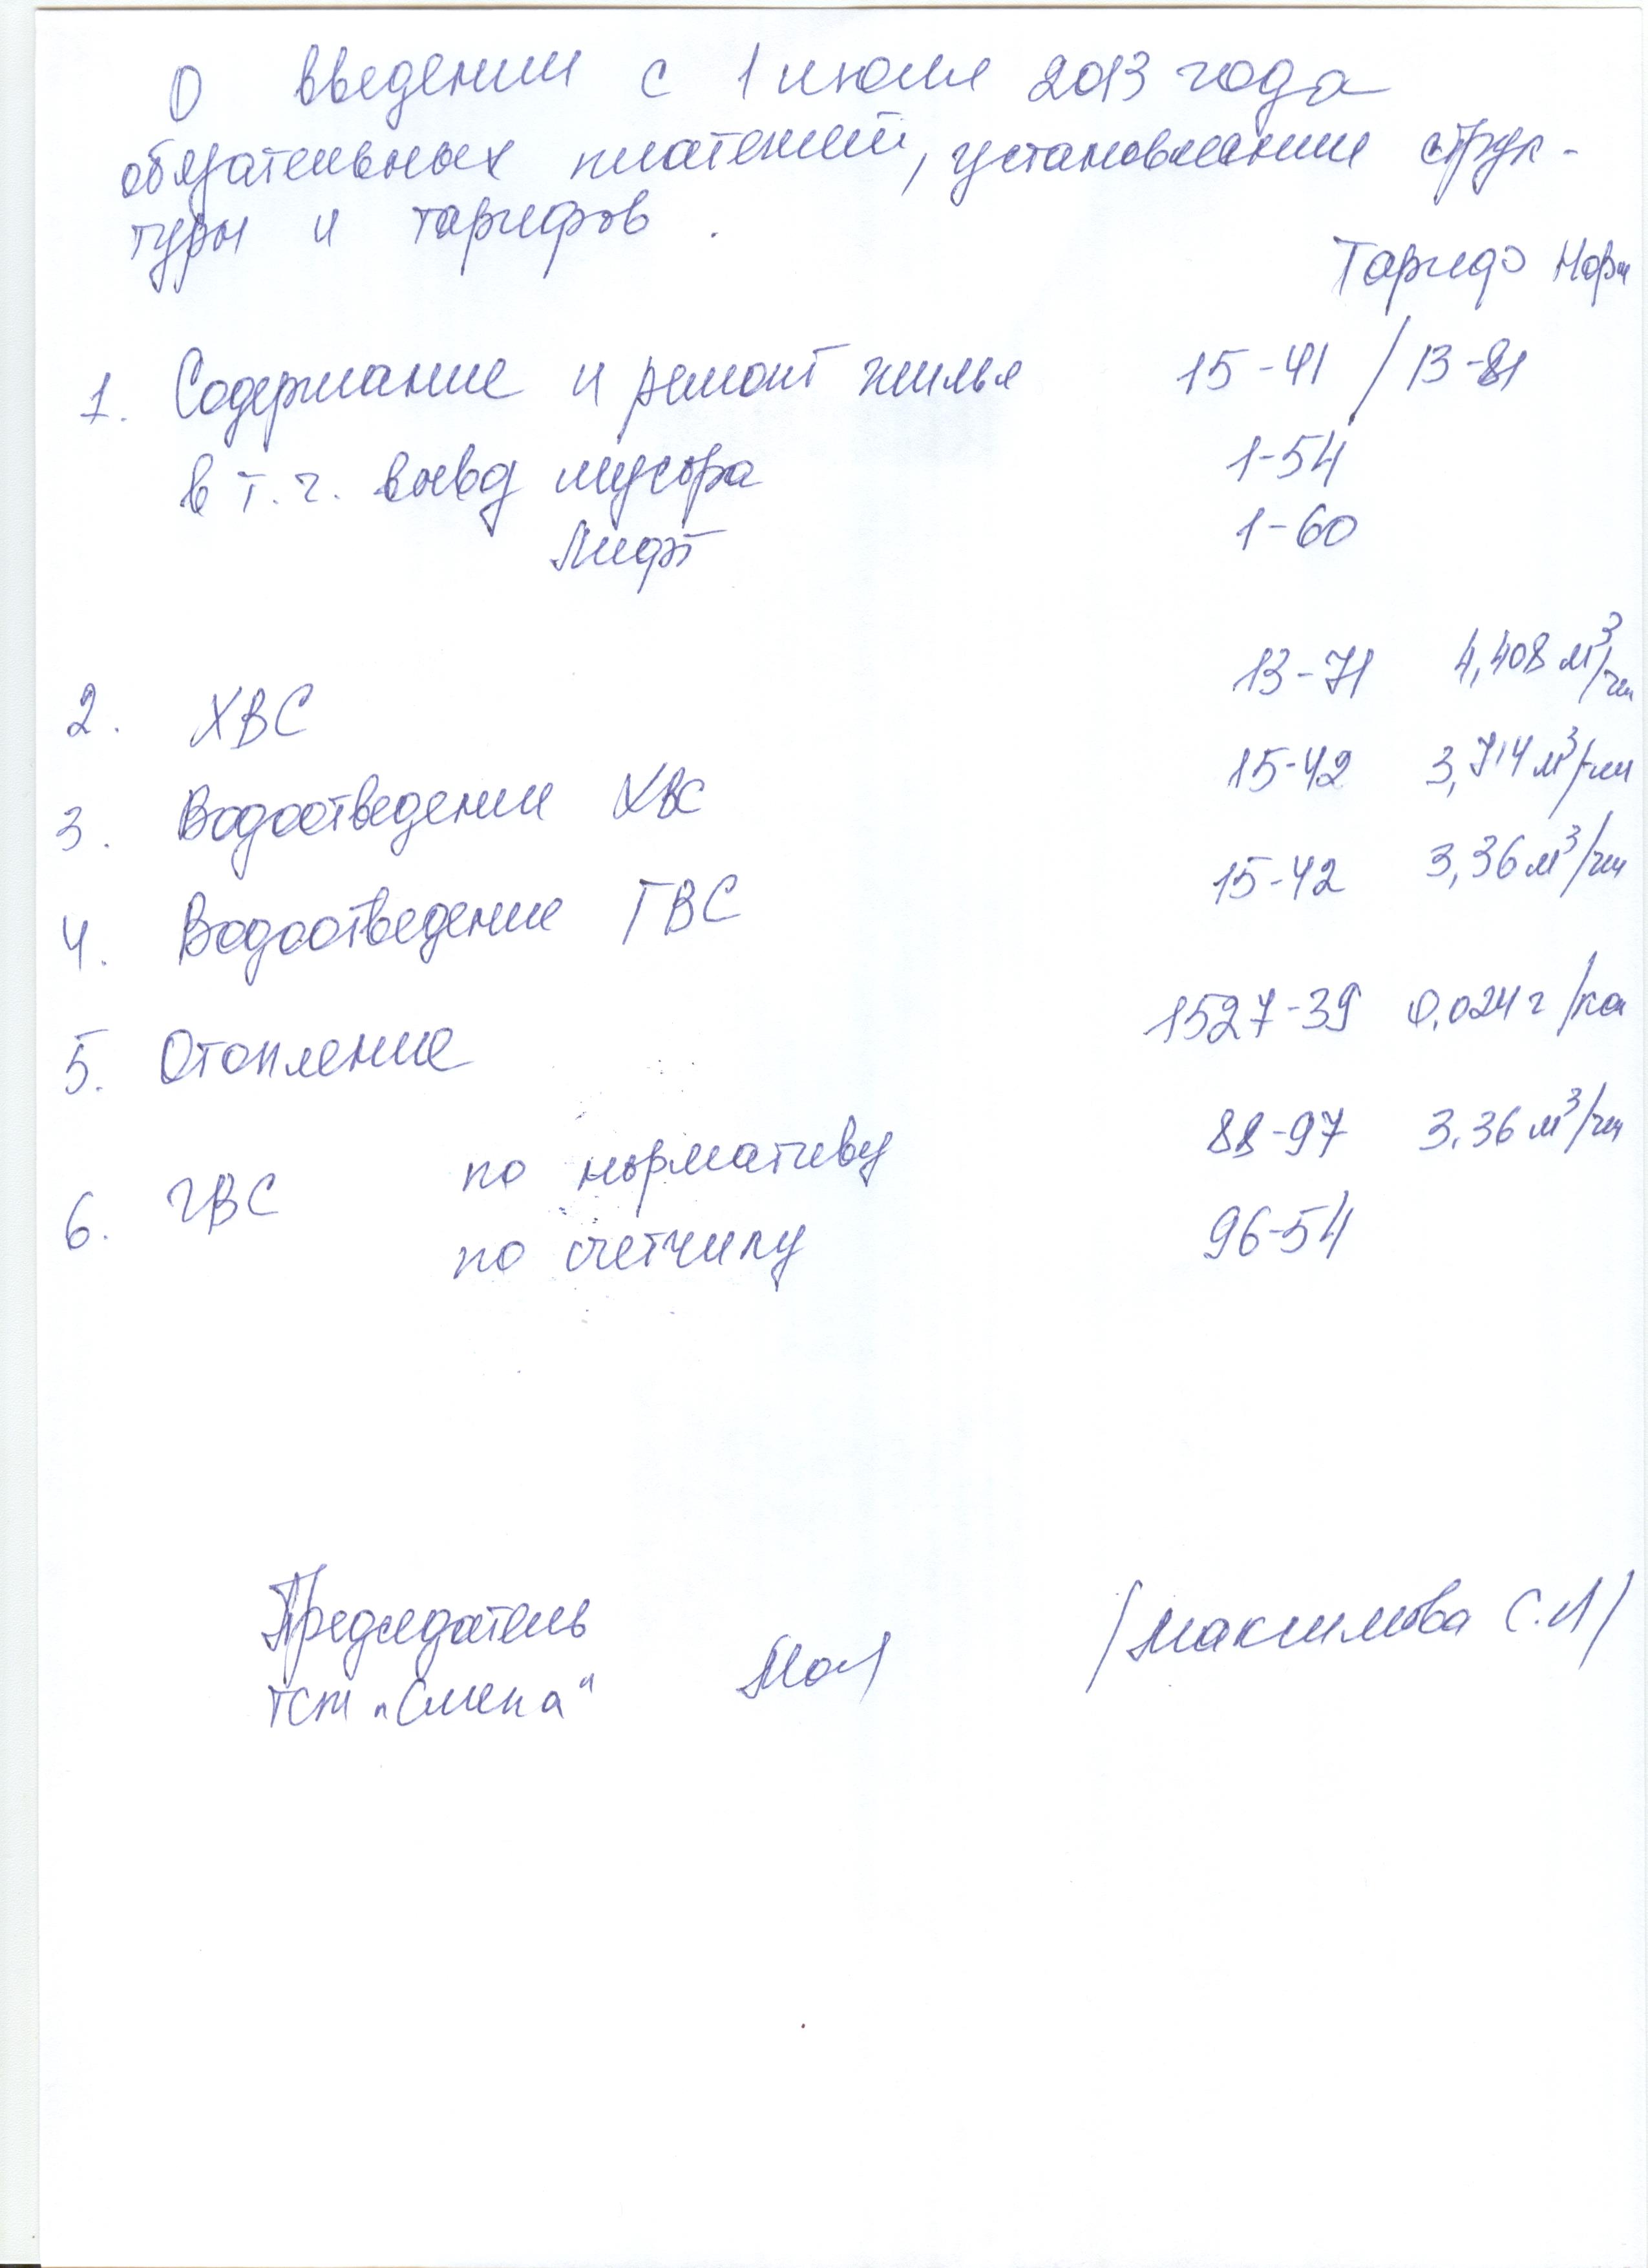 О введении с 1 июля 2013 года
обязательных платежей, установлении струк-
туры и тарифов.
Тариф Норм
1. Содержание и ремонт жилья 15-41 / 13-81
в т.ч. вывод мусора 1-54
Лифт 1-60
2. ХВС 13-71 4,408 м³/чел
3. Водоотведении ХВС 15-42 3,714 м³/чел
4. Водоотведение ГВС 15-42 3,36 м³/чел
5. Отопление 1527-39 0,024 г/кал
6. ГВС по нормативу 88-97 3.36 м³/чел
по счетчику 96-54
Председатель
ТСЖ "Смена" /Максимова С.Л/